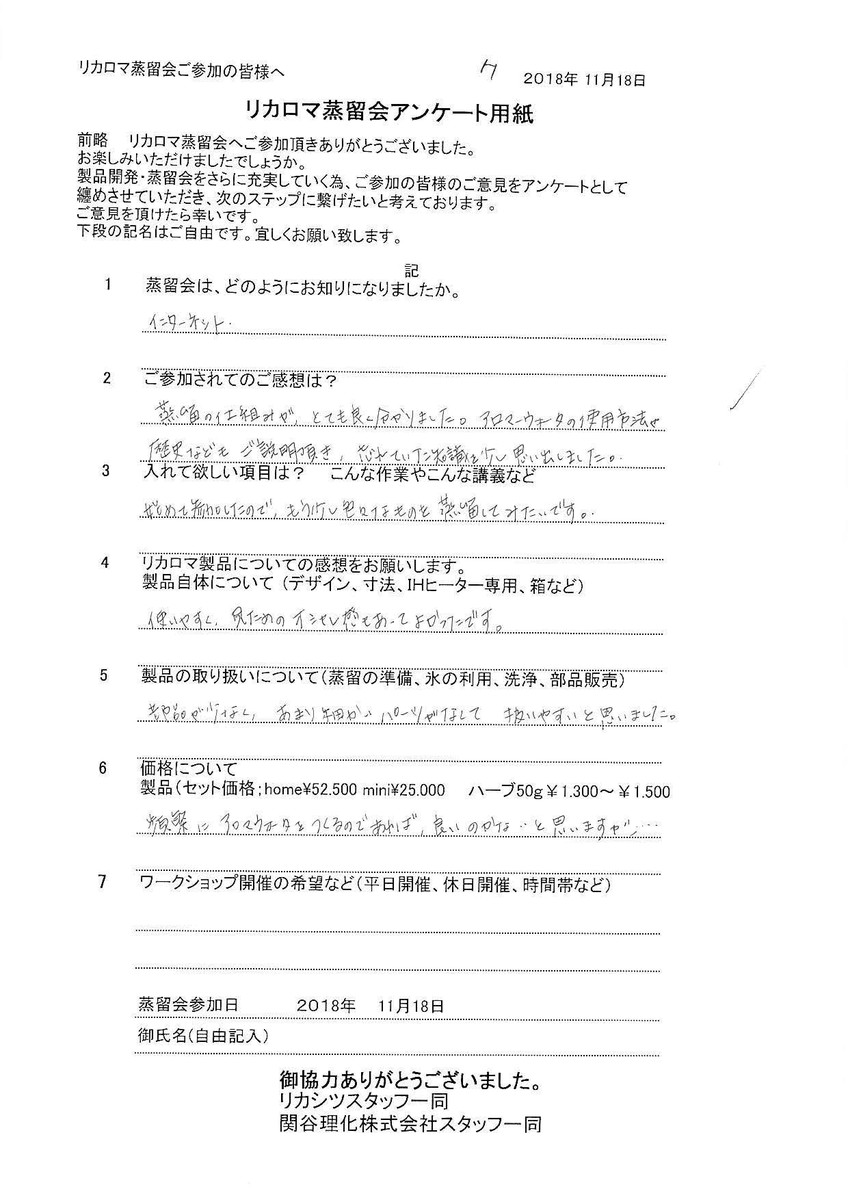 リカロマ蒸留会ご参加の皆様へ
ク 2018年 11月18日
リカロマ蒸留会アンケート用紙
前略　リカロマ蒸留会へご参加頂きありがとうございました。
お楽しみいただけましたでしょうか。
製品開発・蒸留会をさらに充実していく為、ご参加の皆様のご意見をアンケートとして
纏めさせていただき、次のステップに繋げたいと考えております。
ご意見を頂けたら幸いです。
下段の記名はご自由です。宜しくお願い致します。
記
1　蒸留会は、どのようにお知りになりましたか。
インターネット.
2　ご参加されてのご感想は？
蒸留の仕組みが、とても良く分かりました。アロマウォータの使用方法や
歴史などもご説明頂き、忘れていた知識を少し思い出しました。
3　入れて欲しい項目は？　こんな作業やこんな講義など
初めて参加したので、もう少し色々なものを蒸留してみたいです。
4　リカロマ製品についての感想をお願いします。
製品自体について（デザイン、寸法、IHヒーター専用、箱など）
使いやすく、見ためのオシャレ感もあってよかったです。
5　製品の取り扱いについて（蒸留の準備、氷の利用、洗浄、部品販売）
部品が少なく、あまり細かいパーツがなくて 扱いやすいと思いました。
6　価格について
製品（セット価格；home¥52.500 mini¥25.000　ハーブ50g￥1.300～￥1.500
頻繁にアロマウォータをつくるのであれば、良いのかな…と思いますが、…
7　ワークショップ開催の希望など（平日開催、休日開催、時間帯など）
蒸留会参加日　2018年　11月18日
御氏名（自由記入）
御協力ありがとうございました。
リカシツスタッフ一同
関谷理化株式会社スタッフ一同